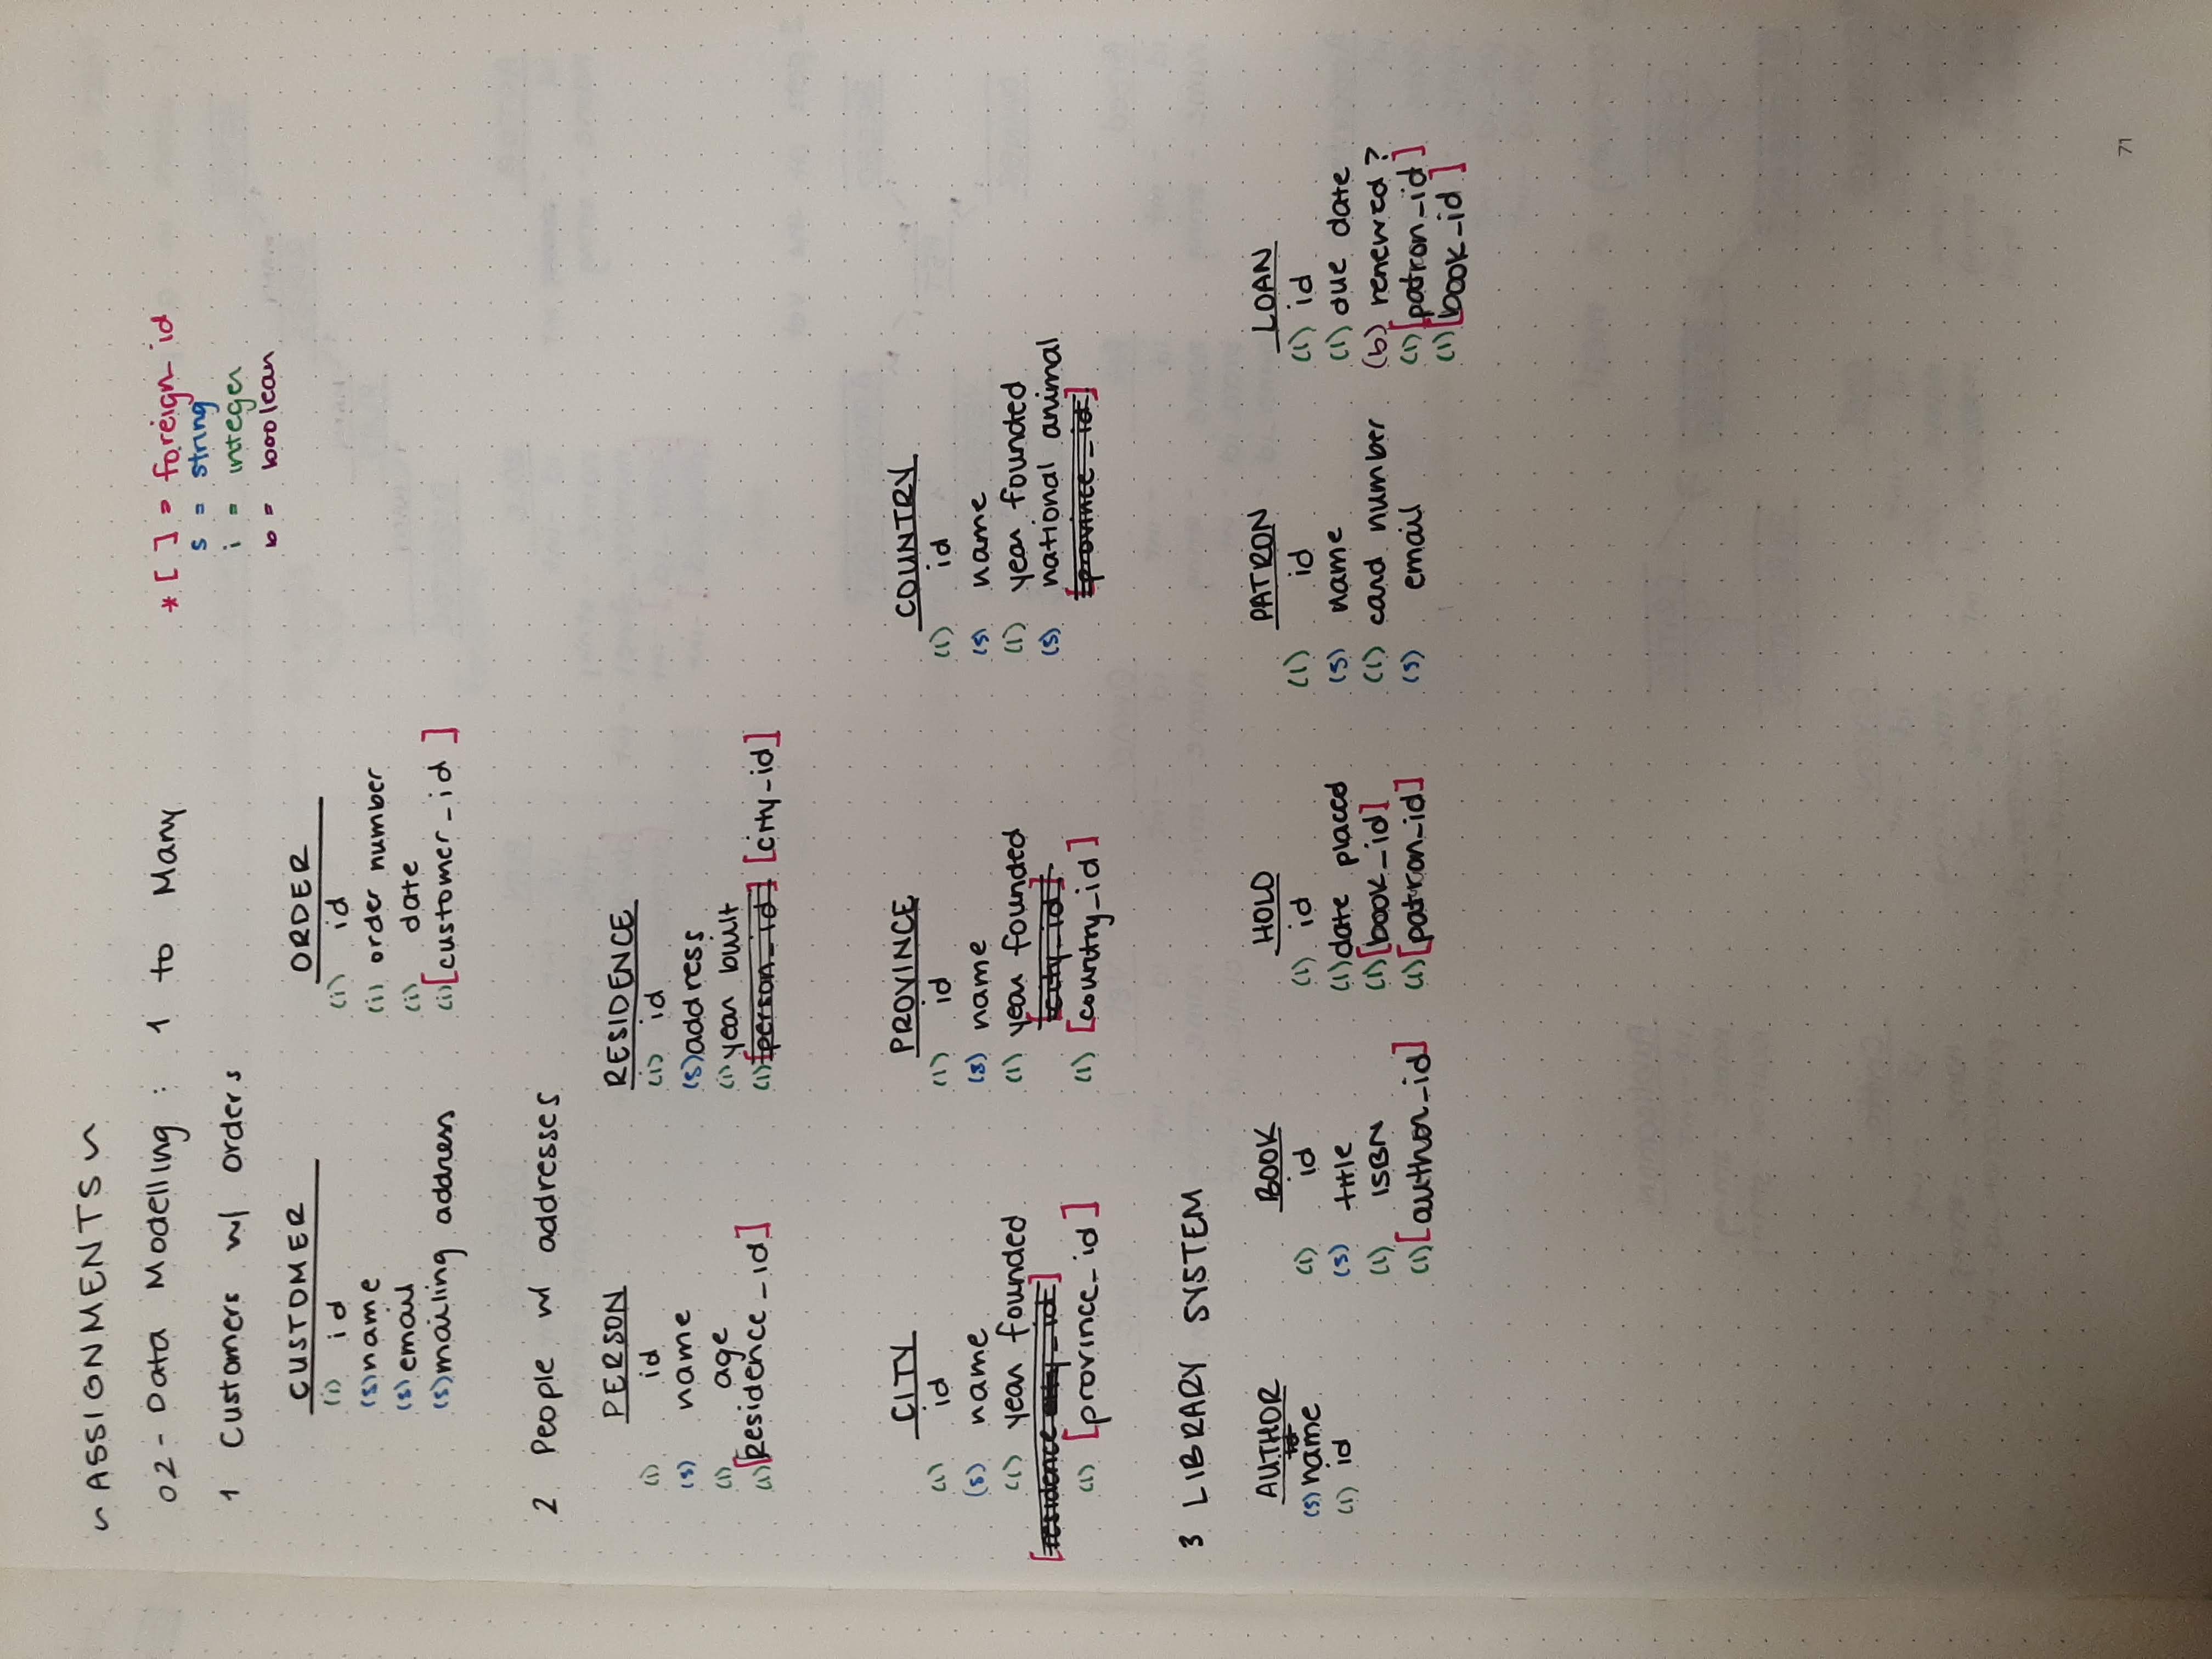 ~ ASSIGNMENTS ~
02 - Data Modelling : 1 to Many
* [ ] = foreign_id
s = string
i = integer
b = boolean
1 Customers w/ orders
CUSTOMER
(i) id
(s) name
(s) email
(s) mailing address
ORDER
(i) id
(i) order number
(i) date
(i) [customer_id]
2 People w/ addresses
PERSON
(i) id
(s) name
(i) age
(i) [residence_id]
RESIDENCE
(i) id
(s) address
(i) year built
(i) [person_id] [city_id]
CITY
(i) id
(s) name
(i) year founded
[residence _id]
(i) [province_id]
PROVINCE
(i) id
(s) name
(i) year founded
[city_id]
(i) [country_id]
COUNTRY
(i) id
(s) name
(i) year founded
(s) national animal
[province_id]
3 LIBRARY SYSTEM
AUTHOR
(s) name
(i) id
BOOK
(i) id
(s) title
(i) ISBN
(i) [author_id]
HOLD
(i) id
(i) date placed
(i) [book_id]
(i) [patron_id]
PATRON
(i) id
(s) name
(i) card number
(s) email
LOAN
(i) id
(i) due date
(b) renewed?
(i) [patron_id]
(i) [book_id]
71